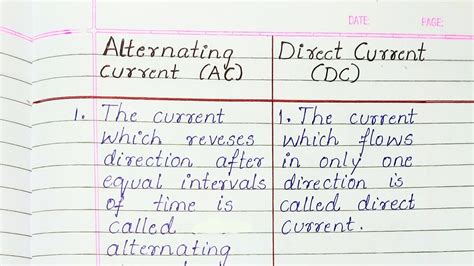 DATE: PAGE:
Alternating current (AC)
Direct Current (DC)
1. The current
which reveses
direction after
equal intervals
of time is
called
alternating
1. The current
which flows
in only one
direction is
called direct
current.